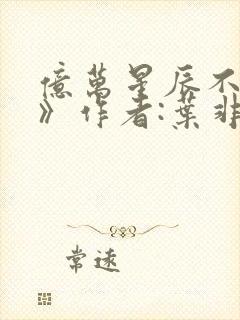 億萬星辰不
》作者:葉非
常遠